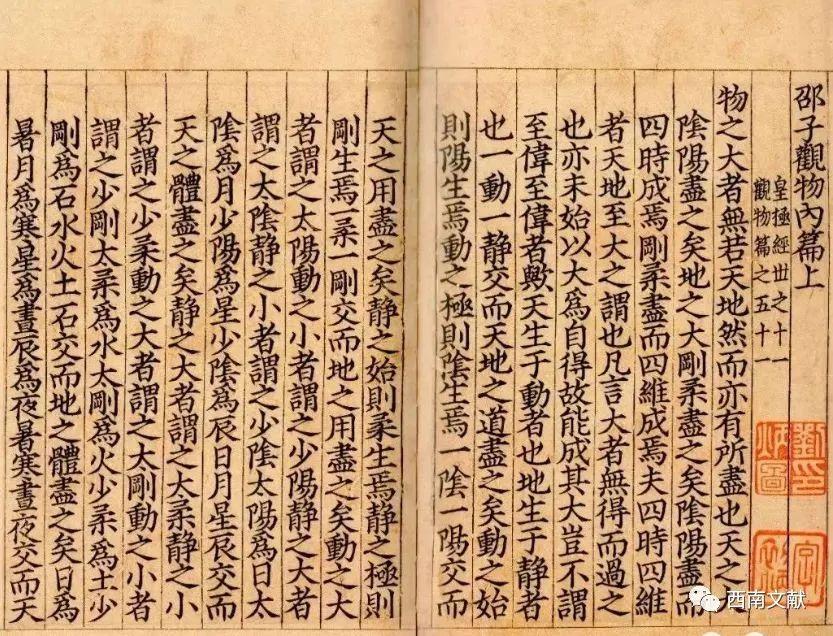 邵子觀物內篇上
皇極經世之十一
觀物篇之五十一
物之大者無若天地然而亦有所盡也天之大
陰陽盡之矣地之大剛柔盡之矣陰陽盡而
四時成焉剛柔盡而四維成焉夫四時四維
者天地至大之謂也凡言大者無得而過之
也亦未始以大為自得故能成其大豈不謂
至偉至偉者歟天生于動者也地生于靜者
也一動一靜交而天地之道盡之矣動之始
則陽生焉動之極則陰生焉一陰一陽交而
天之用盡之矣靜之始則柔生焉靜之極則
剛生焉一柔一剛交而地之用盡之矣動之大
者謂之太陽動之小者謂之少陽靜之大者
謂之太陰靜之小者謂之少陰太陽爲日太
陰爲月少陽爲星少陰爲辰日月星辰交而
天之體盡之矣靜之大者謂之太柔靜之小
者謂之少柔動之大者謂之太剛動之小者
謂之少剛太柔爲水太剛爲火少柔爲土少
剛爲石水火土石交而地之體盡之矣日爲
暑月爲寒星爲晝辰爲夜暑寒晝夜交而天
西南文献